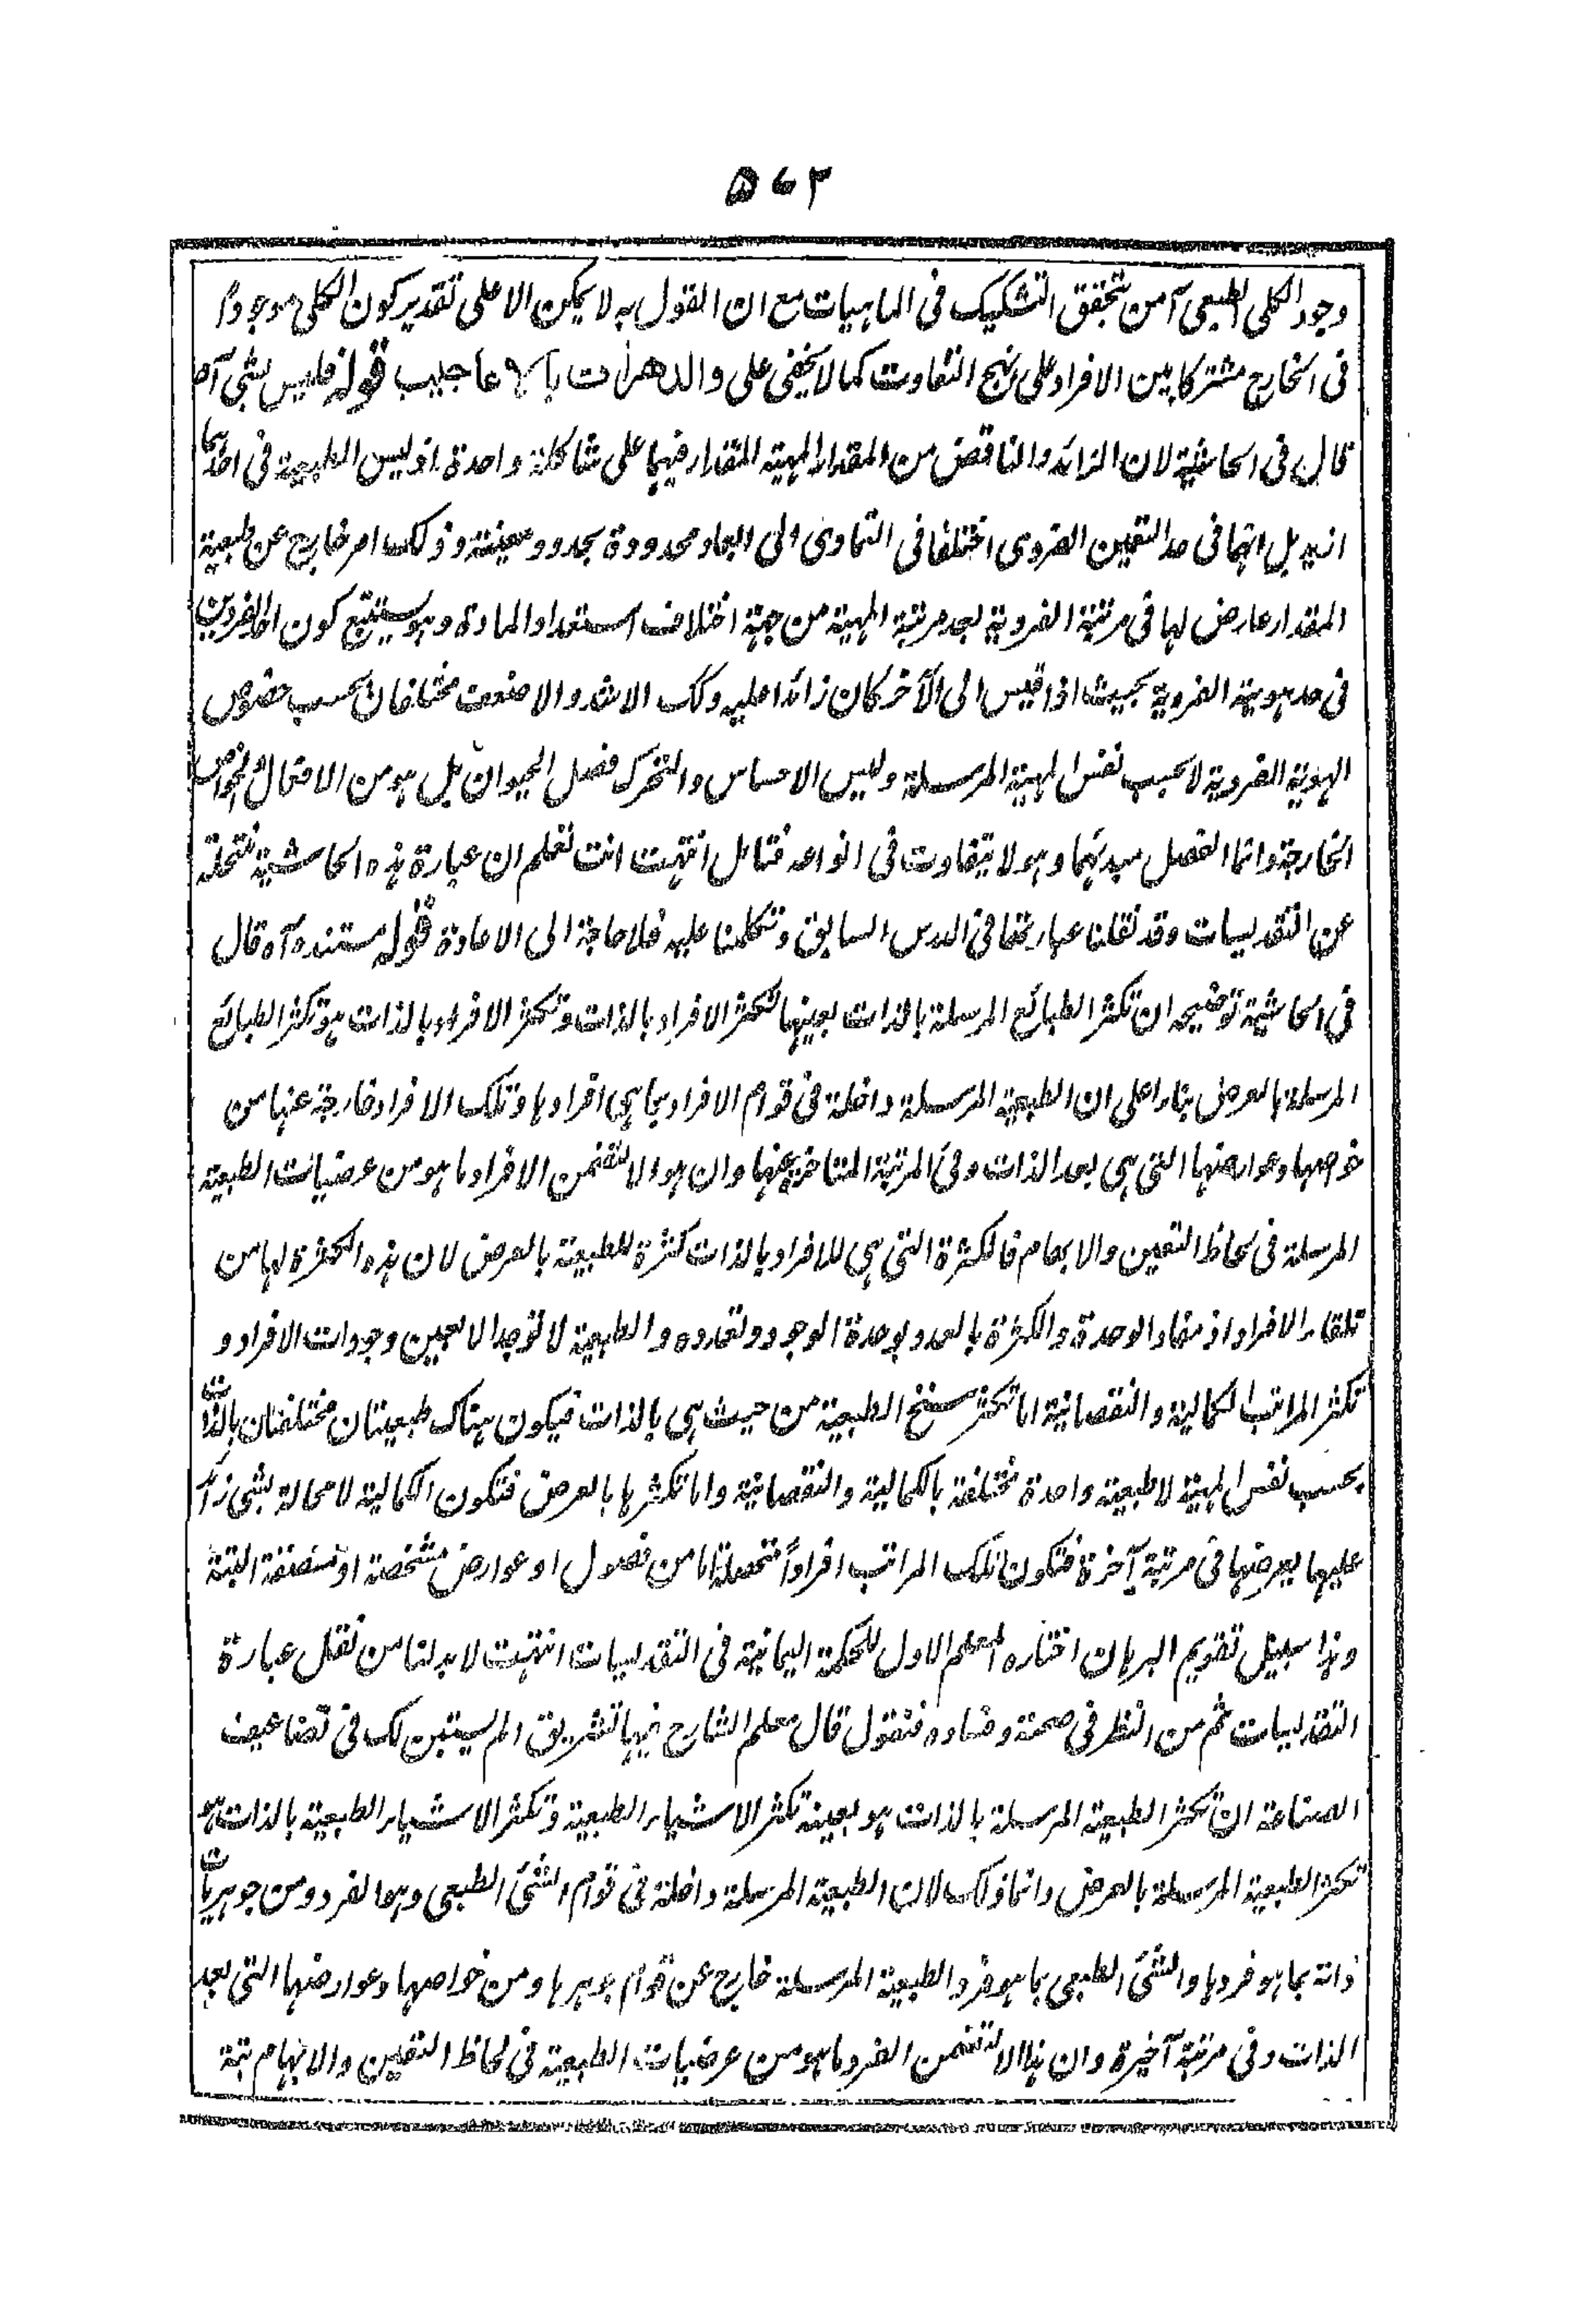 ٥٦٣
وجود الكلى الطبعى آمن تحقق التشكيك فى الماهيات مع ان القول به لا يمكن الا على تقدير كون الكلى موجودا
فى الخارج مشتركا بين الافراد على نهج التفاوت كما لا يخفى على والدهرات بالاعاجيب قوله فليس بشئ آه
قال فى الحاشية لان الزائد والناقص من المقدار المهية المقدار فيهما على شاكلة واحدة اذ ليس الطبيعة فى احدهما
ازيد بل انهما فى حد التعين الفردى اختلفا فى التمادى الى ابعاد محدودة بحدود معينة وذلك امر خارج عن طبيعة
المقدار عارض لها فى مرتبة الفردية بعد مرتبة المهية من جهة اختلاف استعداد المادة وهو يستتبع كون احد الفردين
فى حد هويته الفردية بحيث اذا قيس الى الآخر كان زائدا عليه وكك الاشد والاضعف مختلفان بحسب خصوص
الهوية الفردية لا بحسب نفس المهية المرسلة وليس الاحساس والتحرك فصل الحيوان بل هو من الافعال والخواص
الخارجة وانما الفصل مبدئهما وهو لا يتفاوت فى انواعه فتأمل انتهت انت تعلم ان عبارة هذه الحاشية منتحلة
عن التقديسات وقد نقلنا عبارتها فى الدرس السابق وتكلمنا عليه فلا حاجة الى الاعادة قوله مستنده آه قال
فى الحاشية توضيحه ان تكثر الطبائع المرسلة بالذات بعينها تكثر الافراد بالذات وتكثر الافراد بالذات هو تكثر الطبائع
المرسلة بالعرض بناء على ان الطبيعة المرسلة داخلة فى قوام الافراد بما هى افرادها وتلك الافراد خارجة عنها من
خواصها وعوارضها التى هى بعد الذات وفى المرتبة المتاخرة عنها وان هو الا لتضمن الافراد ما هو من عرضيات الطبيعة
المرسلة فى لحاظ التعين والابهام فالكثرة التى هى للافراد بالذات كثرة للطبيعة بالعرض لان هذه الكثرة لها من
تلقاء الافراد اذ مفاد الوحدة والكثرة بالعدد وحدة الوجود وتعدده والطبيعة لا توجد الا بعين وجودات الافراد و
تكثر المراتب الكمالية والنقصانية اما تكثر سنخ الطبيعة من حيث هى بالذات فيكون هناك طبيعتان مختلفتان بالذات
بحسب نفس المهية لا طبيعة واحدة مختلفة بالكمالية والنقصانية واما تكثرها بالعرض فتكون الكمالية لا محالة بشئ زائد
عليها يعرضها فى مرتبة آخرة فتكون تلك المراتب افرادا متحصلة اما من فصول او عوارض مشخصة او مصنفة البتة
وهذا سبيل تقويم البرهان اختاره المعلم الاول للحكمة اليمانية فى التقديسات انتهت لابد لنا من نقل عبارة
التقديسات ثم من النظر فى صحته وفساده فنقول قال معلم الشارح فيها تشريق الم يستبن لك فى تضاعيف
الصناعة ان تكثر الطبيعة المرسلة بالذات هو بعينه تكثر الاشياء الطبعية وتكثر الاشياء الطبعية بالذات هو
تكثر الطبيعة المرسلة بالعرض وانما ذلك لان الطبيعة المرسلة داخلة فى قوام الشئ الطبعى وهما لفرد ومن جوهريات
ذاته بما هو فردها والشئ الطبعى بما هو فرد الطبيعة المرسلة خارج عن قوام جوهرها ومن خواصها وعوارضها التى بعد
الذات وفى مرتبة آخيرة وان هذا الا لتضمن الفرد ما هو من عرضيات الطبيعة فى لحاظ التعين والابهام تتة